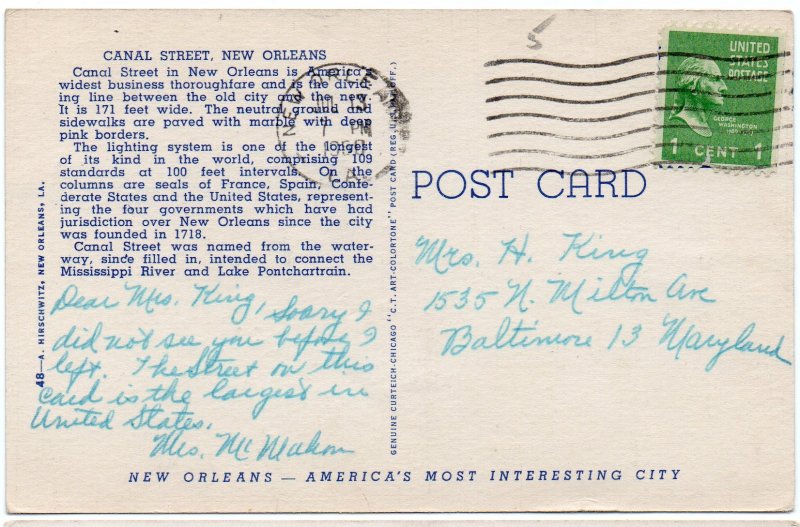 CANAL STREET, NEW ORLEANS
Canal Street in New Orleans is America's
widest business thoroughfare and is the divid-
ing line between the old city and the new.
It is 171 feet wide. The neutral ground and
sidewalks are paved with marble with deep
pink borders.
The lighting system is one of the longest
of its kind in the world, comprising 109
standards at 100 feet intervals. On the
columns are seals of France, Spain, Confe-
derate States and the United States, represent-
ing the four governments which have had
jurisdiction over New Orleans since the city
was founded in 1718.
Canal Street was named from the water-
way, since filled in, intended to connect the
Mississippi River and Lake Pontchartrain.
Dear Mrs. King, Sorry I
did not see you before I
left. The Street on this
card is the largest in
United States.
Mrs. McMahon
48—A. HIRSCHWITZ, NEW ORLEANS, LA.
GENUINE CURTEICH-CHICAGO "C.T. ART-COLORTONE" POST CARD (REG. U.S. PAT. OFF.)
5
NEW ORLEANS
7 PM
1950
LA.
UNITED
STATES
POSTAGE
GEORGE
WASHINGTON
1 CENT 1
POST CARD
Mrs. H. King
1535 N. Milton Ave
Baltimore 13 Maryland
NEW ORLEANS — AMERICA'S MOST INTERESTING CITY